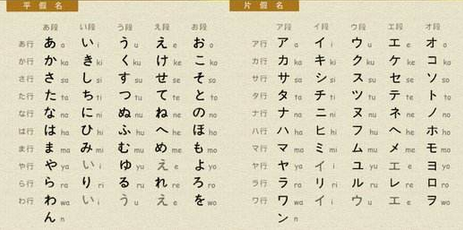 平 假 名
あ段 い段 う段 え段 お段
あ行 あ a い i う u え e お o
か行 か ka き ki く ku け ke こ ko
さ行 さ sa し si す su せ se そ so
た行 た ta ち ti つ tu て te と to
な行 な na に ni ぬ nu ね ne の no
は行 は ha ひ hi ふ hu へ he ほ ho
ま行 ま ma み mi む mu め me も mo
や行 や ya い i ゆ yu え e よ yo
ら行 ら ra り ri る ru れ re ろ ro
わ行 わ wa い i う u え e を wo
ん n
片 假 名
ア段 イ段 ウ段 エ段 オ段
ア行 ア a イ i ウ u エ e オ o
カ行 カ ka キ ki ク ku ケ ke コ ko
サ行 サ sa シ si ス su セ se ソ so
タ行 タ ta チ ti ツ tu テ te ト to
ナ行 ナ na ニ ni ヌ nu ネ ne ノ no
ハ行 ハ ha ヒ hi フ hu ヘ he ホ ho
マ行 マ ma ミ mi ム mu メ me モ mo
ヤ行 ヤ ya イ i ユ yu エ e ヨ yo
ラ行 ラ ra リ ri ル ru レ re ロ ro
ワ行 ワ wa イ i ウ u エ e ヲ wo
ン n